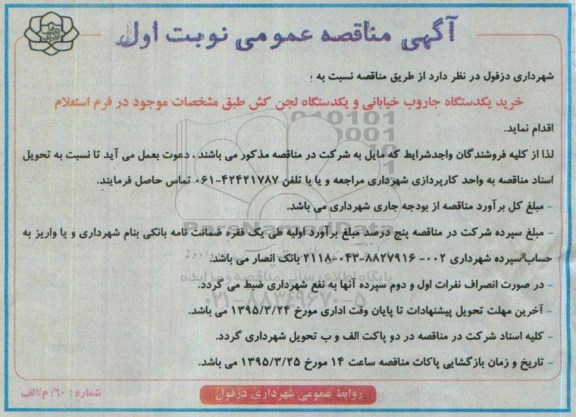 آگهی مناقصه عمومی نوبت اول
شهرداری دزفول در نظر دارد از طریق مناقصه نسبت به :
خرید یکدستگاه جاروب خیابانی و یکدستگاه لجن کش طبق مشخصات موجود در فرم استعلام
اقدام نماید.
لذا از کلیه فروشندگان واجدشرایط که مایل به شرکت در مناقصه مذکور می باشند ، دعوت بعمل می آید تا نسبت به تحویل
اسناد مناقصه به واحد کارپردازی شهرداری مراجعه و یا با تلفن ۴۲۴۲۱۷۸۷-۰۶۱ تماس حاصل فرمایند.
- مبلغ کل برآورد مناقصه از بودجه جاری شهرداری می باشد.
- مبلغ سپرده شرکت در مناقصه پنج درصد مبلغ برآورد اولیه طی یک فقره ضمانت نامه بانکی بنام شهرداری و یا واریز به
حساب سپرده شهرداری ۰۰۲-۸۸۲۷۹۱۶-۰۴۳-۲۱۱۸ بانک انصار می باشد.
- در صورت انصراف نفرات اول و دوم سپرده آنها به نفع شهرداری ضبط می گردد.
- آخرین مهلت تحویل پیشنهادات تا پایان وقت اداری مورخ ۱۳۹۵/۳/۲۴ می باشد.
- کلیه اسناد شرکت در مناقصه در دو پاکت الف و ب تحویل شهرداری گردد.
- تاریخ و زمان بازگشایی پاکات مناقصه ساعت ۱۴ مورخ ۱۳۹۵/۳/۲۵ می باشد.
روابط عمومی شهرداری دزفول
شماره : ۶۰/م/الف
ParsNamadData
پایگاه اطلاع رسانی مناقصه و مزایده
۰۲۱-۸۸۳۴۹۶۷۰-۵